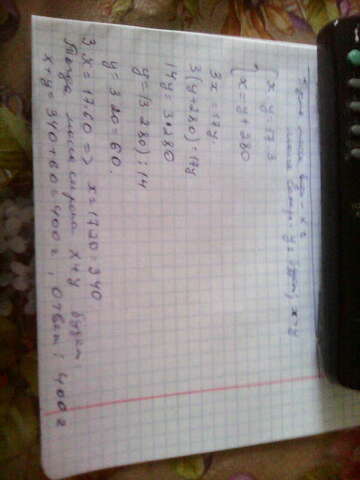 Пусть масса воды - x г
масса сахара - y г
{ x : y = 17 : 3
{ x = y + 280
3x = 17y
3(y+280) = 17y
14y = 3 280
y = (3 280) : 14
y = 3 20 = 60
3x = 17 60 => x = 17 20 = 340
Тогда масса сиропа x+y будет:
x+y = 340+60 = 400 г, ответ: 400 г